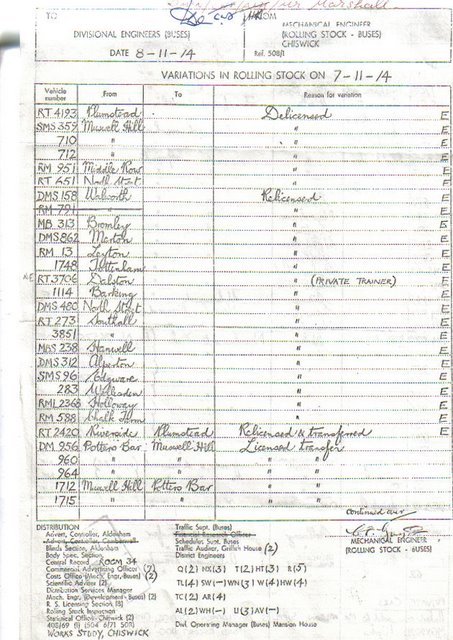 TO
FROM
DIVISIONAL ENGINEERS (BUSES)
MECHANICAL ENGINEER
(ROLLING STOCK - BUSES)
CHISWICK
DATE 8-11-74
Ref. 508/1
VARIATIONS IN ROLLING STOCK ON 7-11-74
Vehicle number From To Reason for variation
RT 4193 Plumstead Delicensed E
SMS 359 Muswell Hill " E
710 " " E
712 " " E
RM 951 Middle Row " E
RT 651 North Street " E
DMS 158 Walworth Relicensed E
RM 791 "
MB 313 Bromley " E
DMS 862 Merton " E
RM 13 Leyton " E
1748 Tottenham " E
RT 3706 Dalston " (PRIVATE TRAINER) E
1114 Barking " E
DMS 480 North Street " E
RT 273 Southall " E
3851 " " E
MBS 238 Hanwell " E
DMS 312 Alperton " E
SMS 96 Edgware " E
283 Willesden " E
RML 2368 Holloway " E
RM 588 Chalk Farm " E
RT 2420 Riverside Plumstead Relicensed & transferred E
DM 956 Potters Bar Muswell Hill Licensed transfer
960 " " " "
964 " " " "
1712 Muswell Hill Potters Bar " "
1715 " " " "
Continued over
DISTRIBUTION
Advert, Controller, Aldenham
Blinds Section, Aldenham
Body Spec. Section,
Central Record ROOM 34
Commercial Advertising Officer
Costs Office (Mech. Engr. Buses) (2)
Scientific Adviser (2)
Distribution Services Manager
Mech. Engr. (Development - Buses)
R. S. Licensing Section
Rolling Stock Inspection
Statistical Office, Chiswick (2)
WORKS STUDY, CHISWICK
Traffic Supt. (Buses)
Financial Research Officer
Schedules Supt. Buses
Traffic Auditor, Griffith House (2)
District Engineers
Q(2) NX(3) T(2) HT(3) R(5)
TL(4) SW(-) WN(3) W(4) HW(4)
TC(2) AR(4)
AL(2) WH(-) U(3) AV(-)
Divl. Operating Manager (Buses) Mansion House
MECHANICAL ENGINEER
(ROLLING STOCK - BUSES)